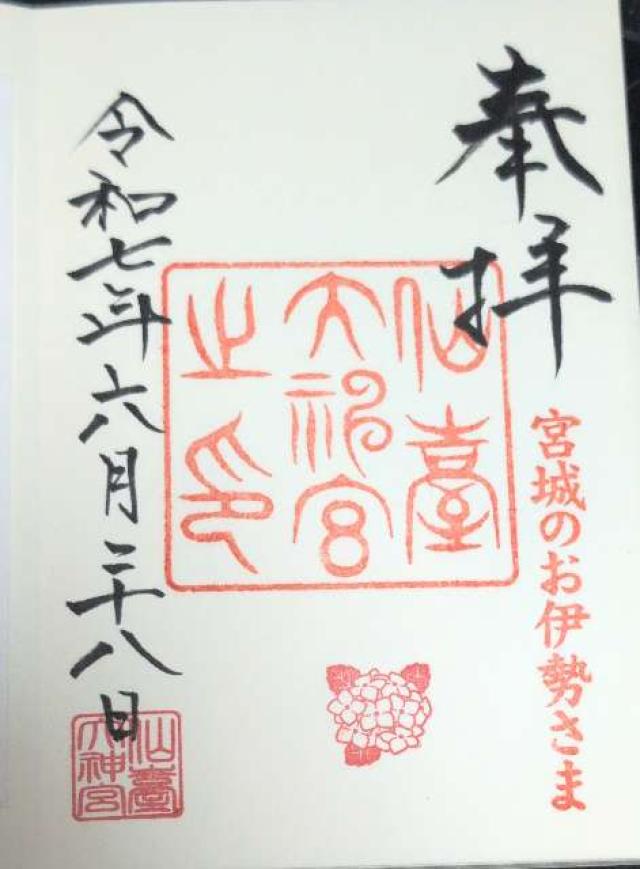 奉拝
宮城のお伊勢さま
仙臺
大神宮
之印
令和七年六月二十八日
仙臺
大神宮